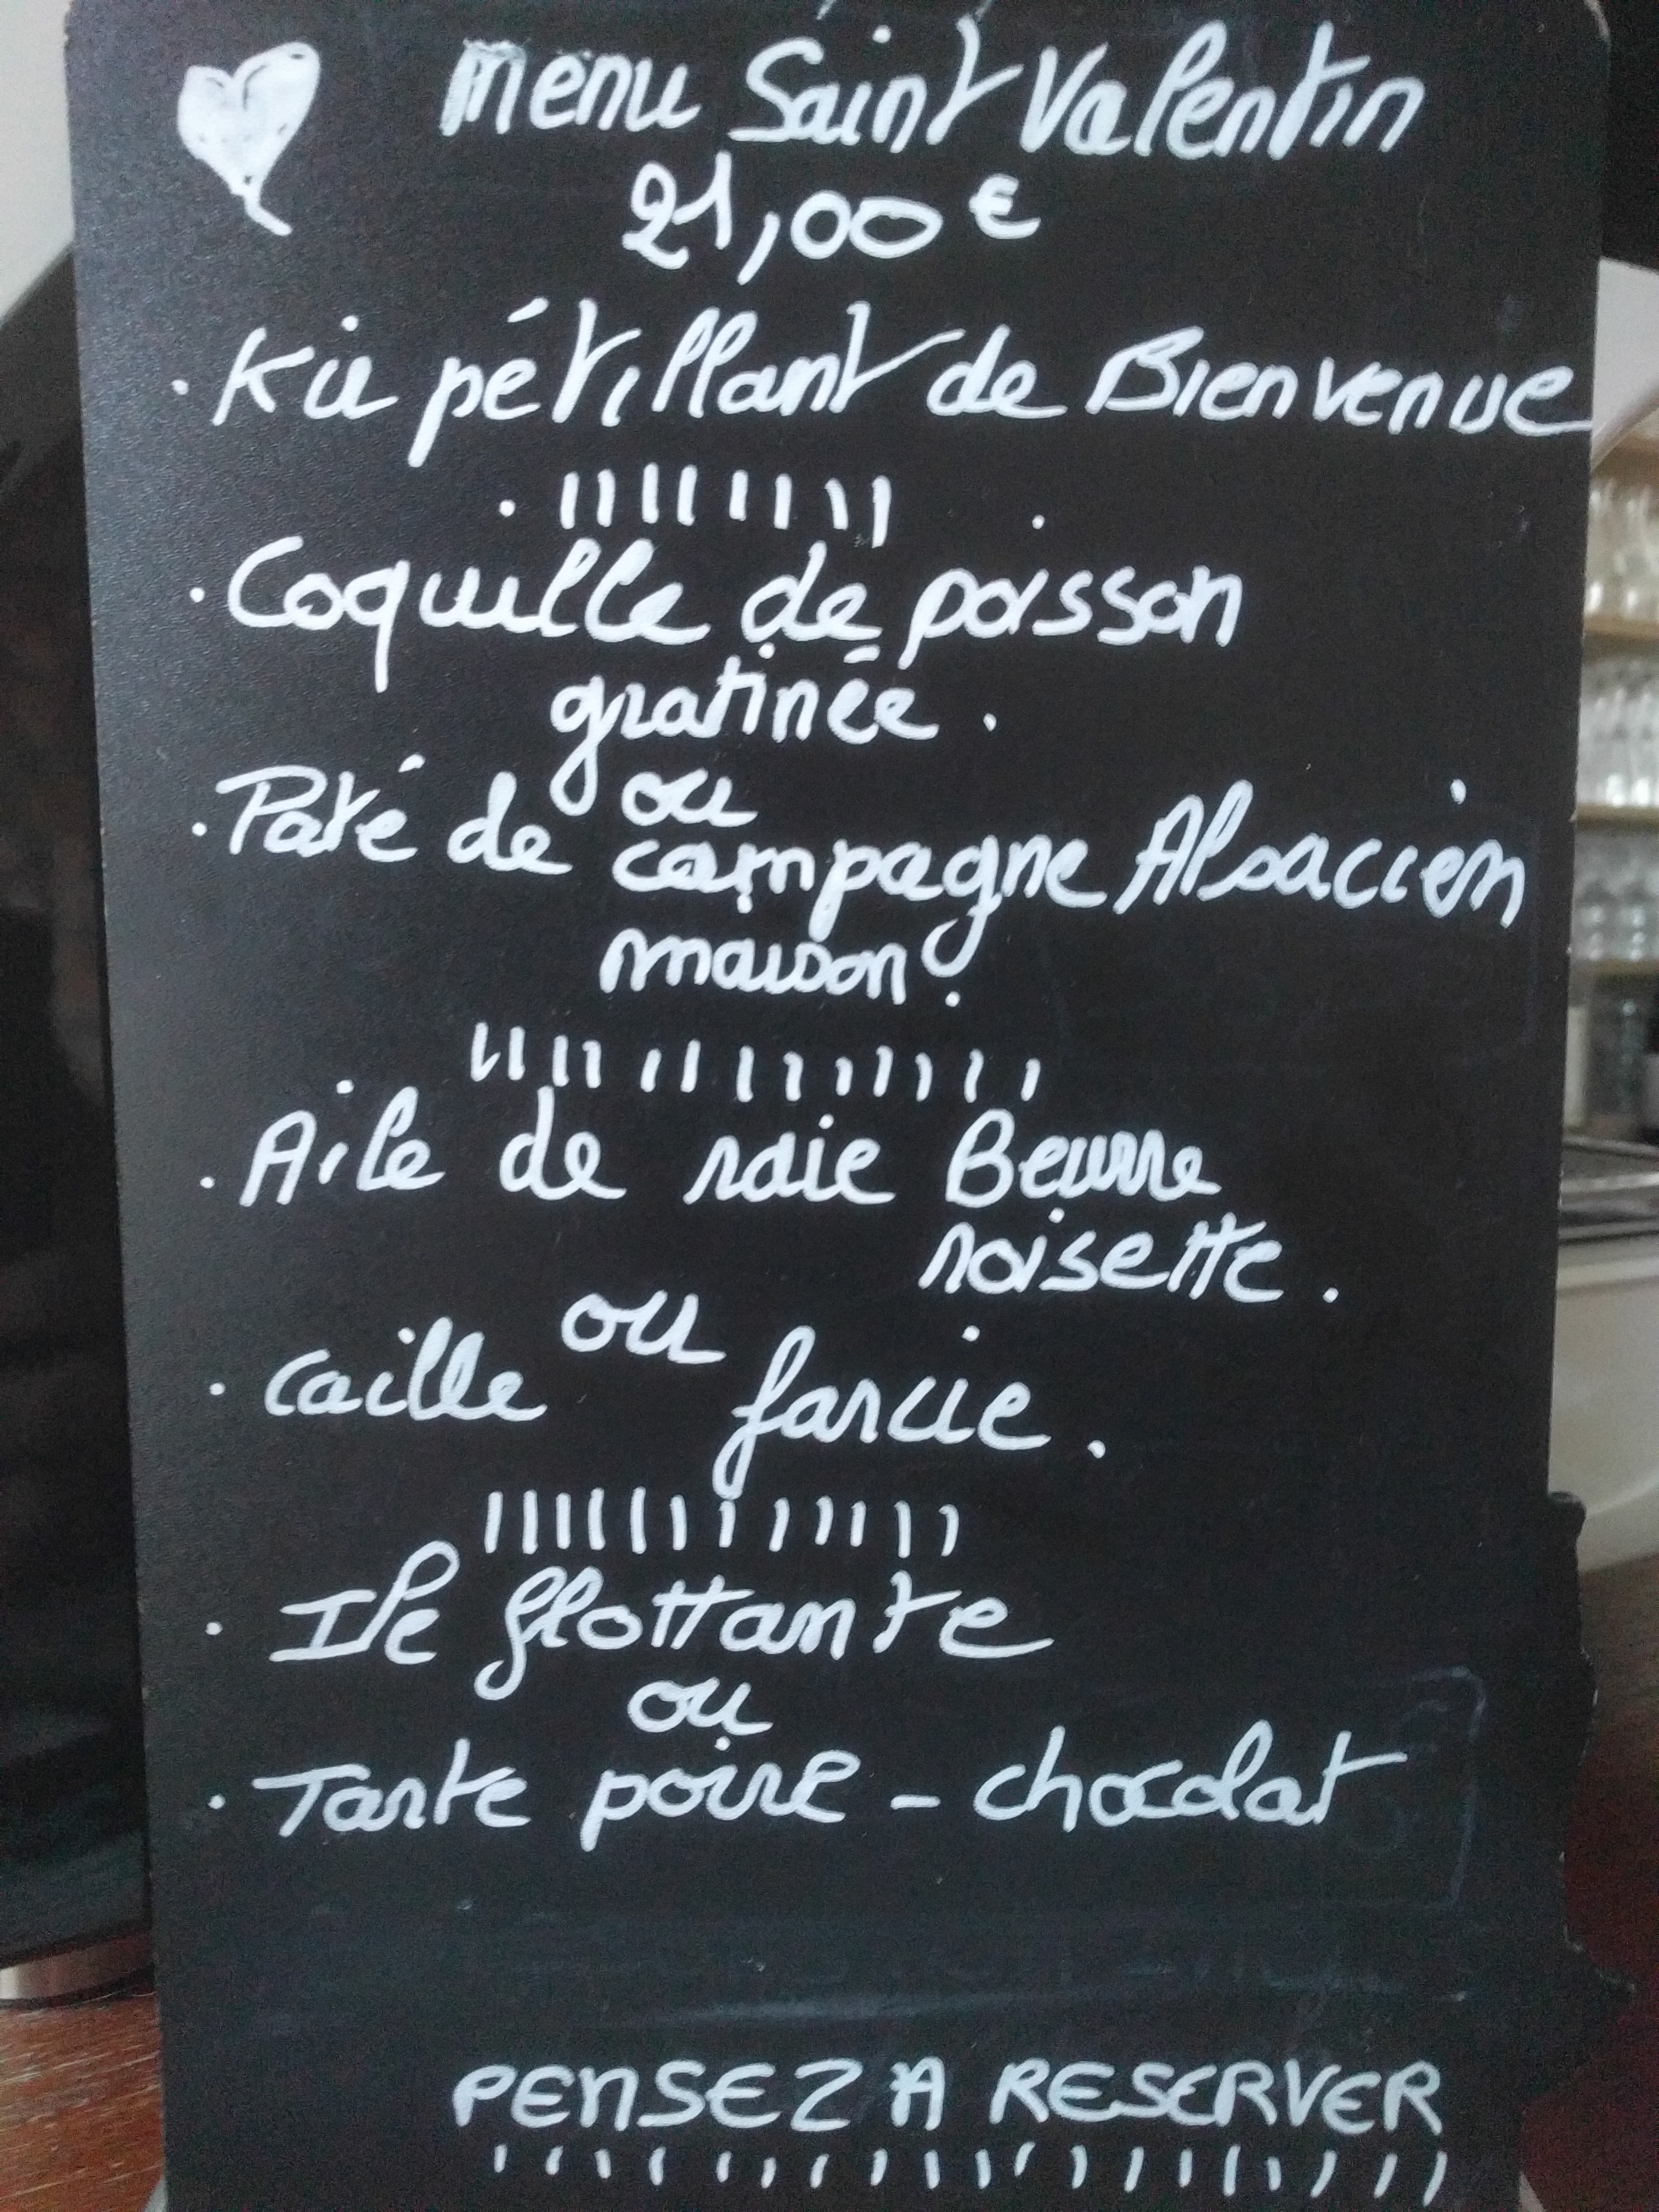 Menu Saint Valentin
21,00 €
. Kir pétillant de Bienvenue
. Coquille de poisson
gratinée .
ou
. Paté de campagne Alsacien
maison .
. Aile de raie Beurre
noisette .
ou
. caille farcie .
. Ile flottante
ou
. Tarte poire - chocolat
PENSEZ A RESERVER